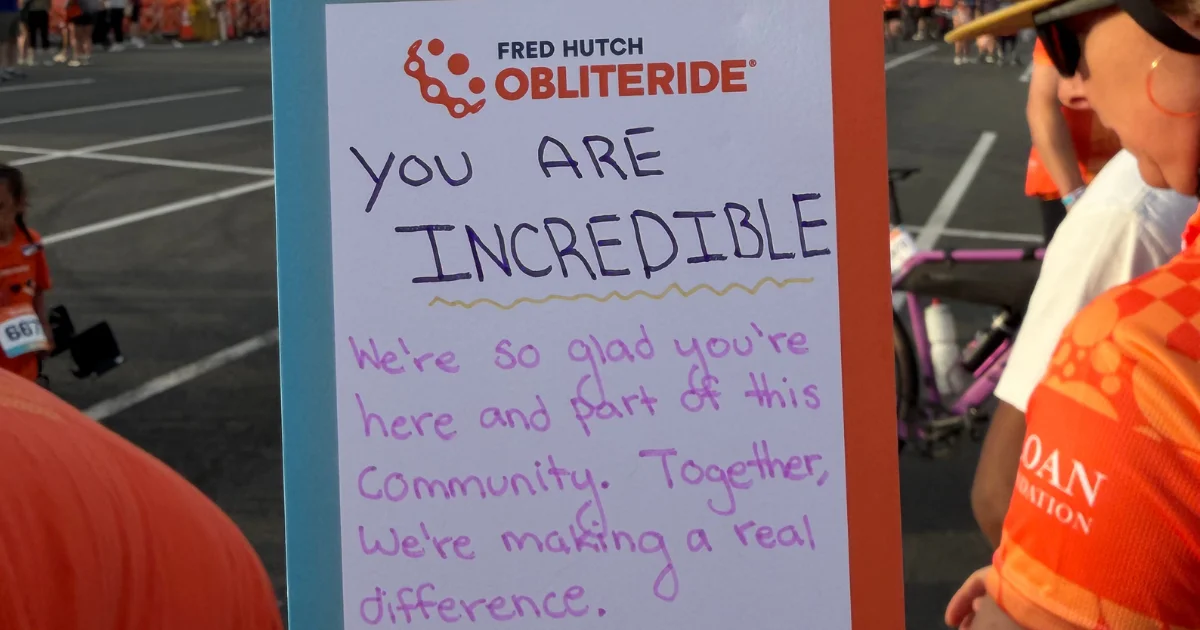 FRED HUTCH
OBLITERIDE®
YOU ARE
INCREDIBLE
We're so glad you're
here and part of this
Community. Together,
We're making a real
difference.
667
OAN
DATION